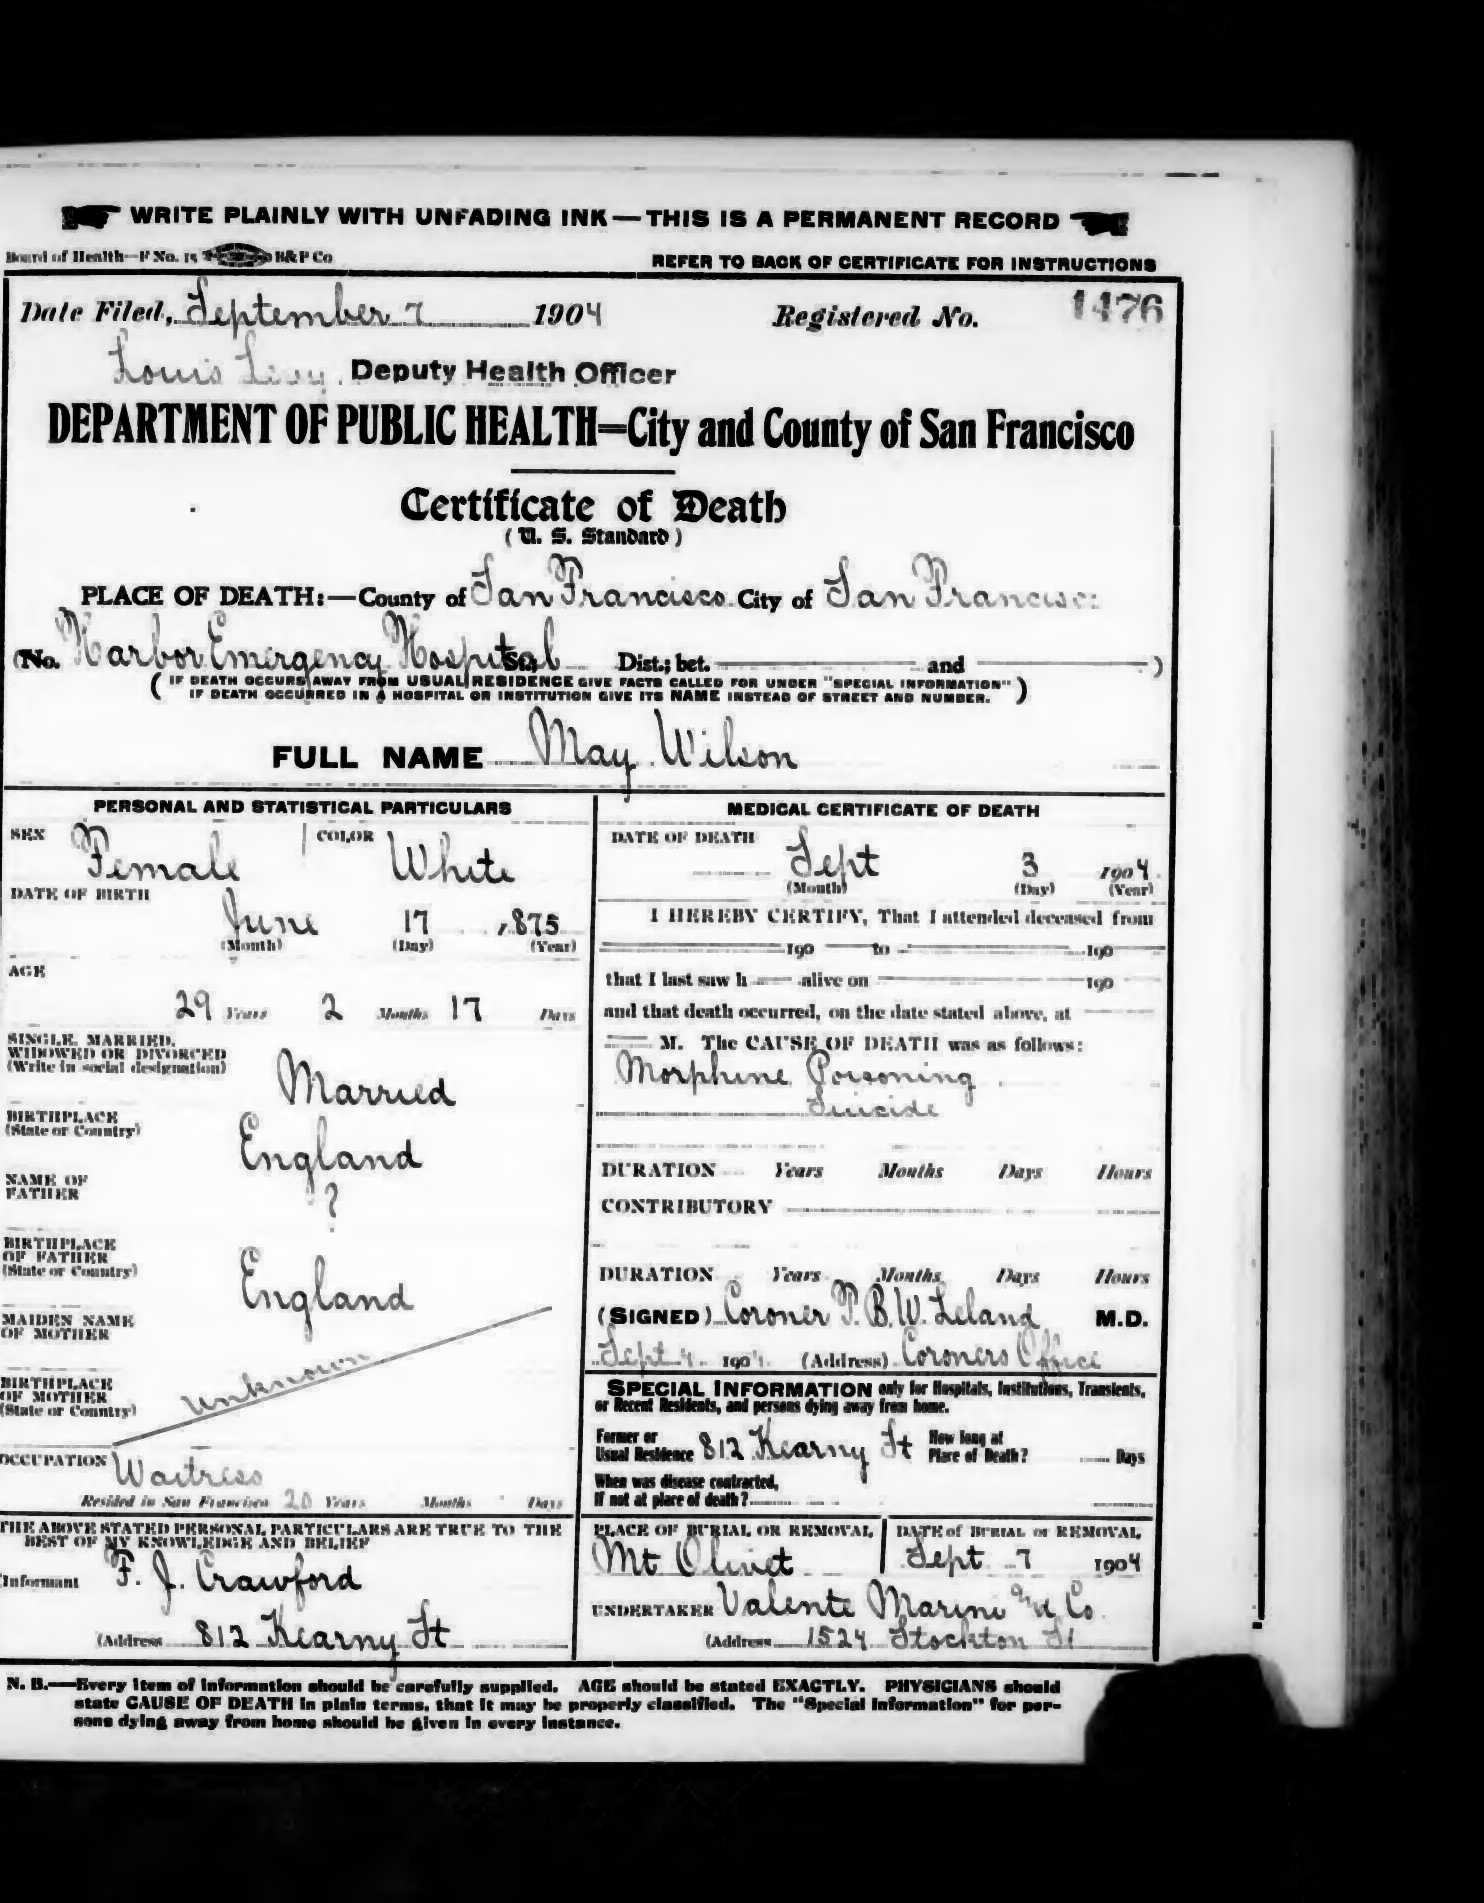 WRITE PLAINLY WITH UNFADING INK—THIS IS A PERMANENT RECORD
Board of Health—F No. 15 H&P Co
REFER TO BACK OF CERTIFICATE FOR INSTRUCTIONS
Date Filed, September 7 1904 Registered No. 1476
Louis Levy, Deputy Health Officer
DEPARTMENT OF PUBLIC HEALTH—City and County of San Francisco
Certificate of Death
(U. S. Standard)
PLACE OF DEATH:—County of San Francisco City of San Francisco
(No. Harbor Emergency Hospital St., Dist.; bet. and )
(IF DEATH OCCURS AWAY FROM USUAL RESIDENCE GIVE FACTS CALLED FOR UNDER "SPECIAL INFORMATION"
IF DEATH OCCURRED IN A HOSPITAL OR INSTITUTION GIVE ITS NAME INSTEAD OF STREET AND NUMBER.)
FULL NAME May Wilson
PERSONAL AND STATISTICAL PARTICULARS
SEX Female COLOR White
DATE OF BIRTH
June 17 1875
(Month) (Day) (Year)
AGE
29 Years 2 Months 17 Days
SINGLE, MARRIED,
WIDOWED OR DIVORCED
(Write in social designation)
Married
BIRTHPLACE
(State or Country)
England
NAME OF
FATHER
?
BIRTHPLACE
OF FATHER
(State or Country)
England
MAIDEN NAME
OF MOTHER
unknown
BIRTHPLACE
OF MOTHER
(State or Country)
OCCUPATION Waitress
Resided in San Francisco 20 Years Months Days
THE ABOVE STATED PERSONAL PARTICULARS ARE TRUE TO THE
BEST OF MY KNOWLEDGE AND BELIEF
Informant F. J. Crawford
(Address 812 Kearny St
MEDICAL CERTIFICATE OF DEATH
DATE OF DEATH
Sept 3 1904
(Month) (Day) (Year)
I HEREBY CERTIFY, That I attended deceased from
190 to 190
that I last saw h alive on 190
and that death occurred, on the date stated above, at
M. The CAUSE OF DEATH was as follows:
Morphine Poisoning
Suicide
DURATION Years Months Days Hours
CONTRIBUTORY
DURATION Years Months Days Hours
(SIGNED) Coroner T. B. W. Leland M.D.
Sept 4 1904 (Address) Coroners Office
SPECIAL INFORMATION only for Hospitals, Institutions, Transients,
or Recent Residents, and persons dying away from home.
Former or
Usual Residence 812 Kearny St
How long at
Place of Death? Days
When was disease contracted,
If not at place of death?
PLACE OF BURIAL OR REMOVAL
Mt Olivet
DATE of BURIAL or REMOVAL
Sept 7 1904
UNDERTAKER Valente Marini and Co
(Address 1524 Stockton St
N. B.—Every item of information should be carefully supplied. AGE should be stated EXACTLY. PHYSICIANS should
state CAUSE OF DEATH in plain terms, that it may be properly classified. The "Special Information" for per-
sons dying away from home should be given in every instance.